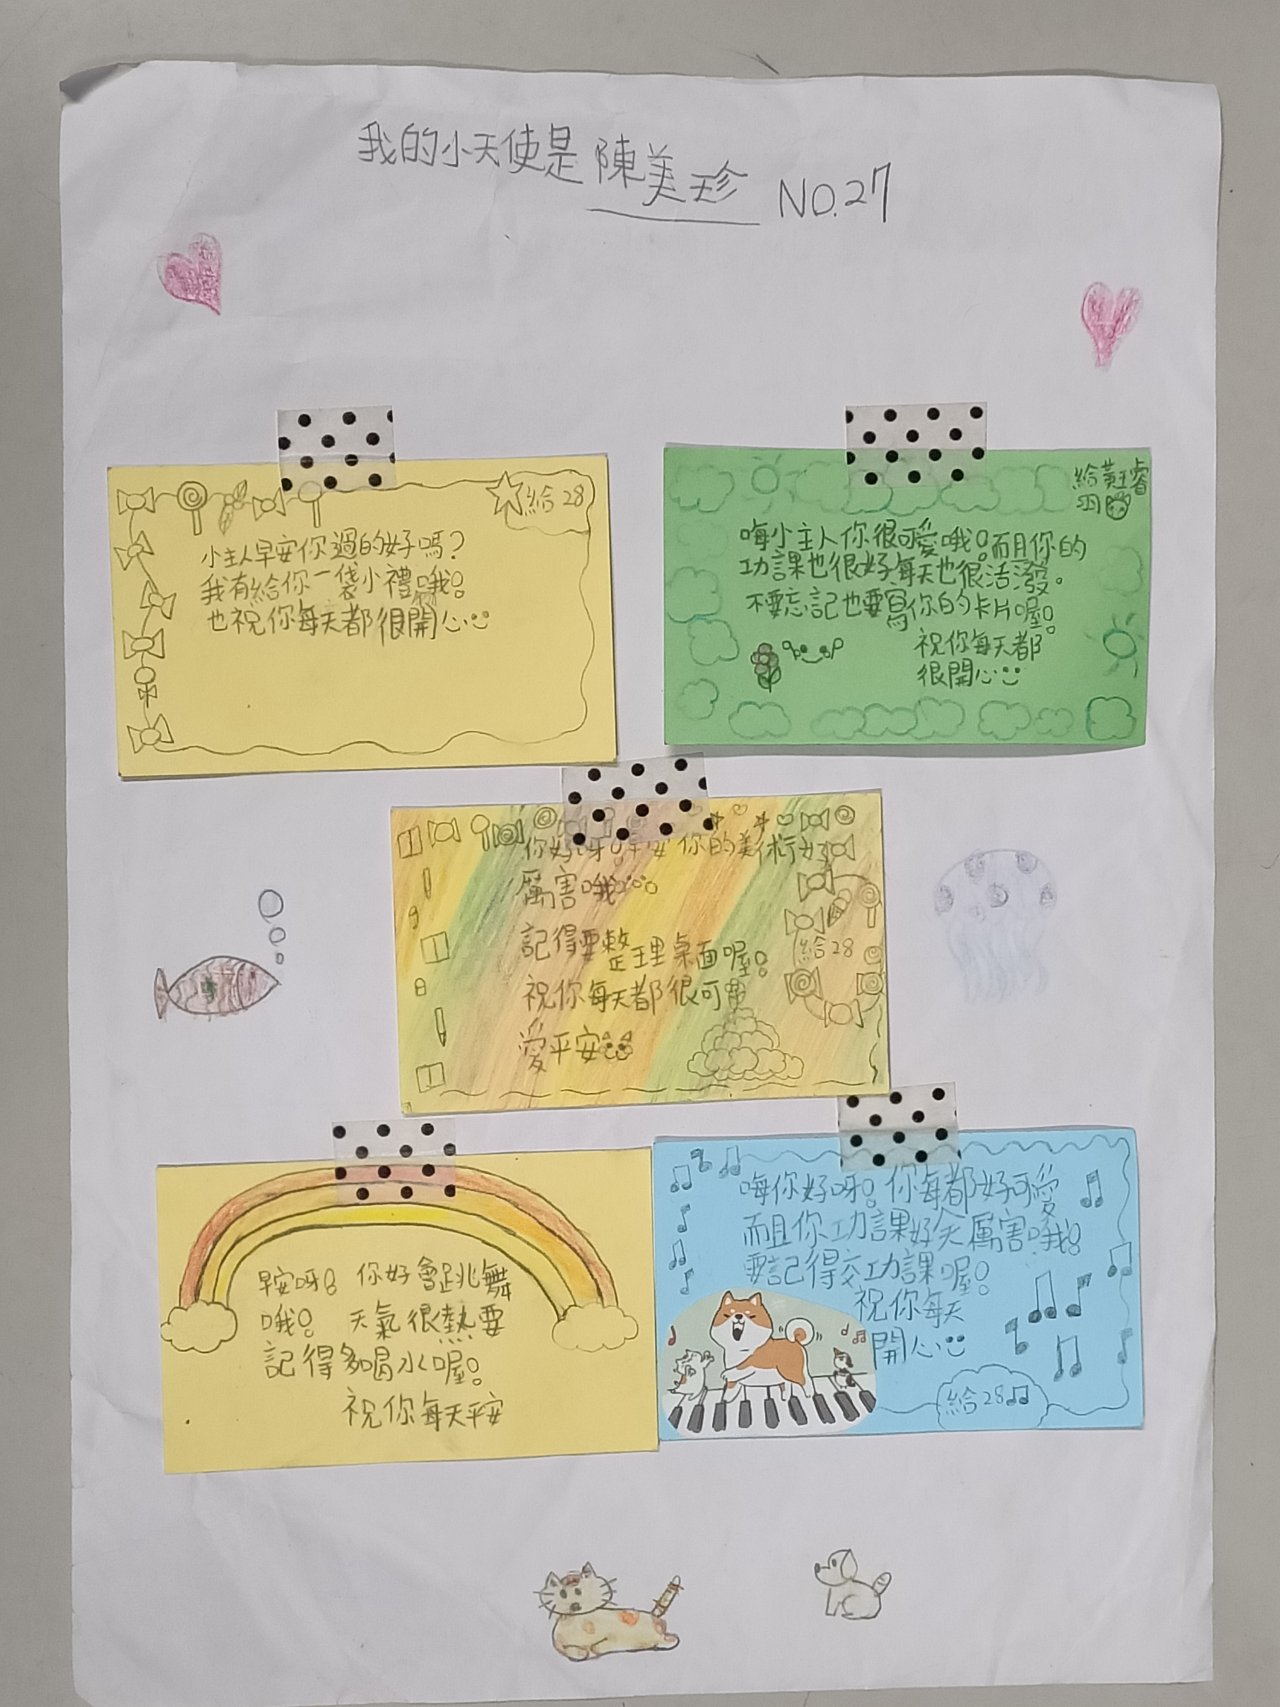 我的小天使是陳美珍 NO.27
給28
小主人早安你過的好嗎?
我有給你一袋小禮哦!
也祝你每天都很開心
給黃玉睿
羽
嗨小主人你很可愛哦!而且你的
功課也很好每天也很活潑。
不要忘記也要寫你的卡片喔!
祝你每天都
很開心
你好呀!早安你的美術好
厲害哦
記得要整理桌面喔!
給28
祝你每天都很可
愛平安
早安呀! 你好會跳舞
哦! 天氣很熱要
記得多喝水喔!
祝你每天平安
嗨你好呀!你每都好可愛
而且你功課好 厲害哦!
要記得交功課喔!
祝你每天
開心
給28